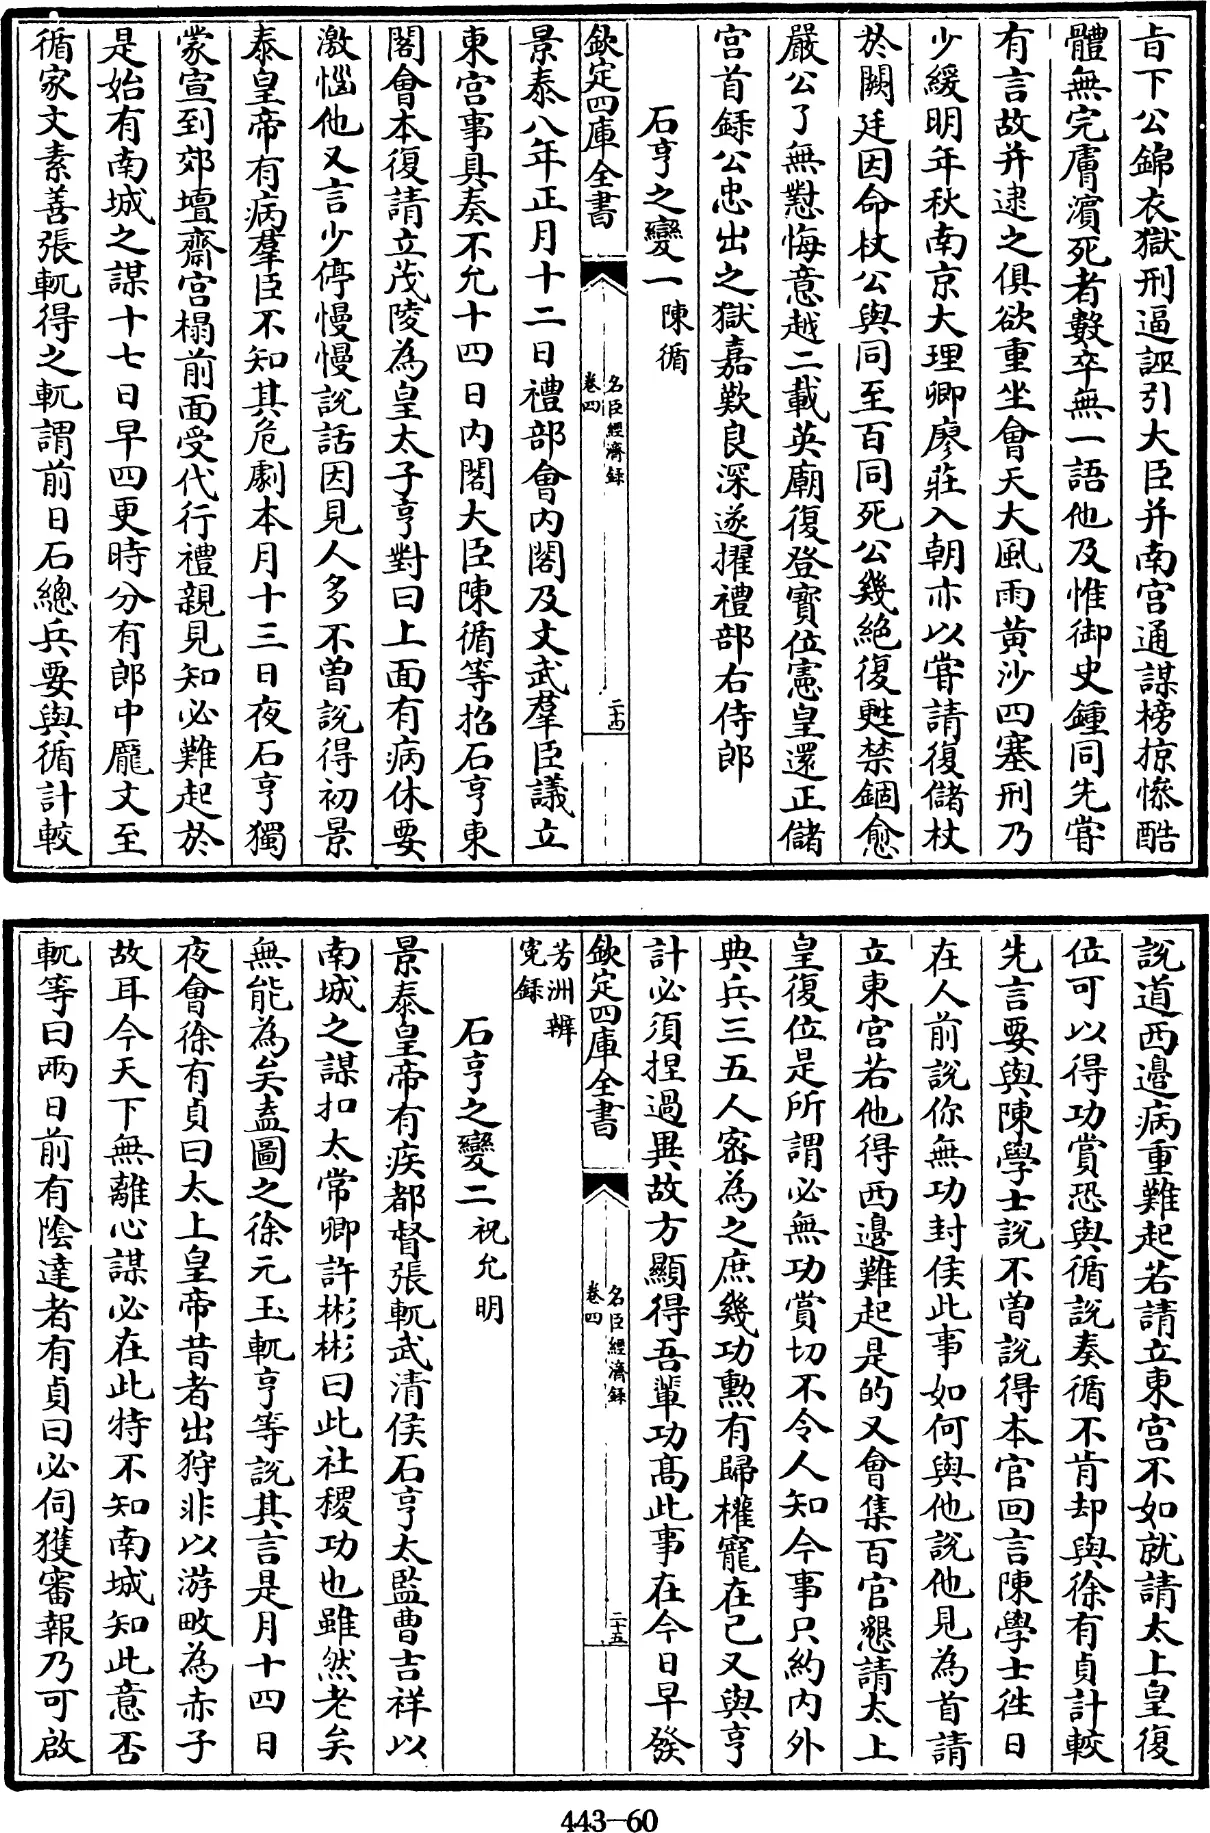 旨下公錦衣獄刑逼誣引大臣并南宫通謀榜掠慘酷
體無完膚濵死者數卒無一語他及惟御史鍾同先嘗
有言故并逮之俱欲重坐會天大風雨黄沙四塞刑乃
少緩明年秋南京大理卿廖莊入朝亦以嘗請復儲杖
於闕廷因命杖公與同至百同死公幾絶復甦禁錮愈
嚴公了無懟悔意越二載英廟復登寳位憲皇還正儲
宫首録公忠出之獄嘉歎良深遂擢禮部右侍郎
石亨之變一 陳循
欽定四庫全書 名臣經濟録 卷四 二十四
景泰八年正月十二日禮部會内閣及文武羣臣議立
東宫事具奏不允十四日内閣大臣陳循等招石亨東
閣會本復請立茂陵為皇太子亨對曰上面有病休要
激惱他又言少停慢慢説話因見人多不曽説得初景
泰皇帝有病羣臣不知其危劇本月十三日夜石亨獨
蒙宣到郊壇齋宫榻前面受代行禮親見知必難起於
是始有南城之謀十七日早四更時分有郎中龎文至
循家文素善張軏得之軏謂前日石總兵要與循計較
説道西邉病重難起若請立東宫不如就請太上皇復
位可以得功賞恐與循説奏循不肯却與徐有貞計較
先言要與陳學士説不曽説得本官回言陳學士徃日
在人前説你無功封侯此事如何與他説他見為首請
立東宫若他得西邉難起是的又會集百官懇請太上
皇復位是所謂必無功賞切不令人知今事只約内外
典兵三五人宻為之庶幾功勲有歸權寵在己又與亨
計必須捏過異故方顯得吾輩功髙此事在今日早發
欽定四庫全書 名臣經濟録 卷四 二十五
芳洲辨
寃録
石亨之變二 祝允明
景泰皇帝有疾都督張軏武清侯石亨太監曹吉祥以
南城之謀扣太常卿許彬彬曰此社稷功也雖然老矣
無能為矣盍圖之徐元玉軏亨等説其言是月十四日
夜會徐有貞曰太上皇帝昔者出狩非以游畋為赤子
故耳今天下無離心謀必在此特不知南城知此意否
軏等曰兩日前有陰達者有貞曰必伺獲審報乃可啟
443—60